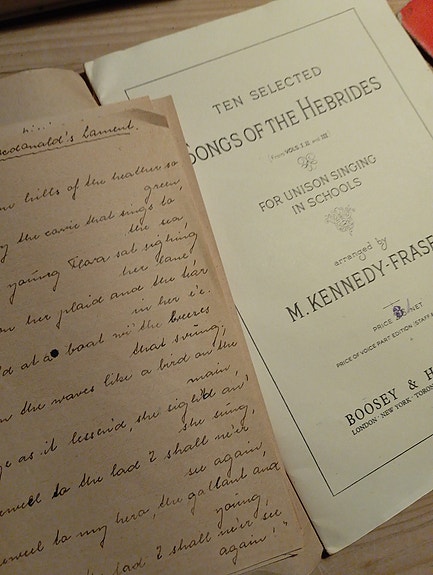 cdonald's Lament.
hills of the heather so
green,
the corrie that sings to
the sea,
young Flora sat sighing
her lane,
her plaid and the tear
in her e'e.
at a boat wi' the breezes
that swung,
on the waves like a bird on the
main,
as it lessen'd, she sigh'd an'
she sung,
to the lad I shall ne'er
see again,
to my hero, the gallant and
young,
lad I shall ne'er see
again!"
TEN SELECTED
SONGS OF THE HEBRIDES
(From VOLS. I. II. and III)
FOR UNISON SINGING
IN SCHOOLS
arranged by
M. KENNEDY-FRASE
PRICE NET
PRICE OF VOICE PART EDITION (STAFF A
BOOSEY & H
LONDON · NEW YORK · TORON